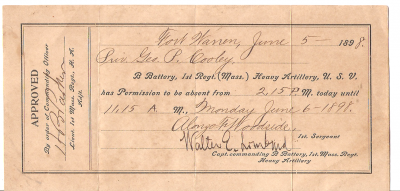 Fort Warren, June 5 — 1898.
Priv. Geo. P. Cooley,
B Battery, 1st Regt. (Mass.) Heavy Artillery, U. S. V.
has Permission to be absent from 2.15 P. M. today until
11.15 A M., Monday June 6 - 1898.
Alonzo F. Woodside.
1st Sergeant
Walter E. Lombard
Capt. commanding B Battery, 1st. Mass. Regt.
Heavy Artillery
APPROVED
By order of Commanding Officer
Lieut. 1st Mass. Regt., H. A.
Adjt.